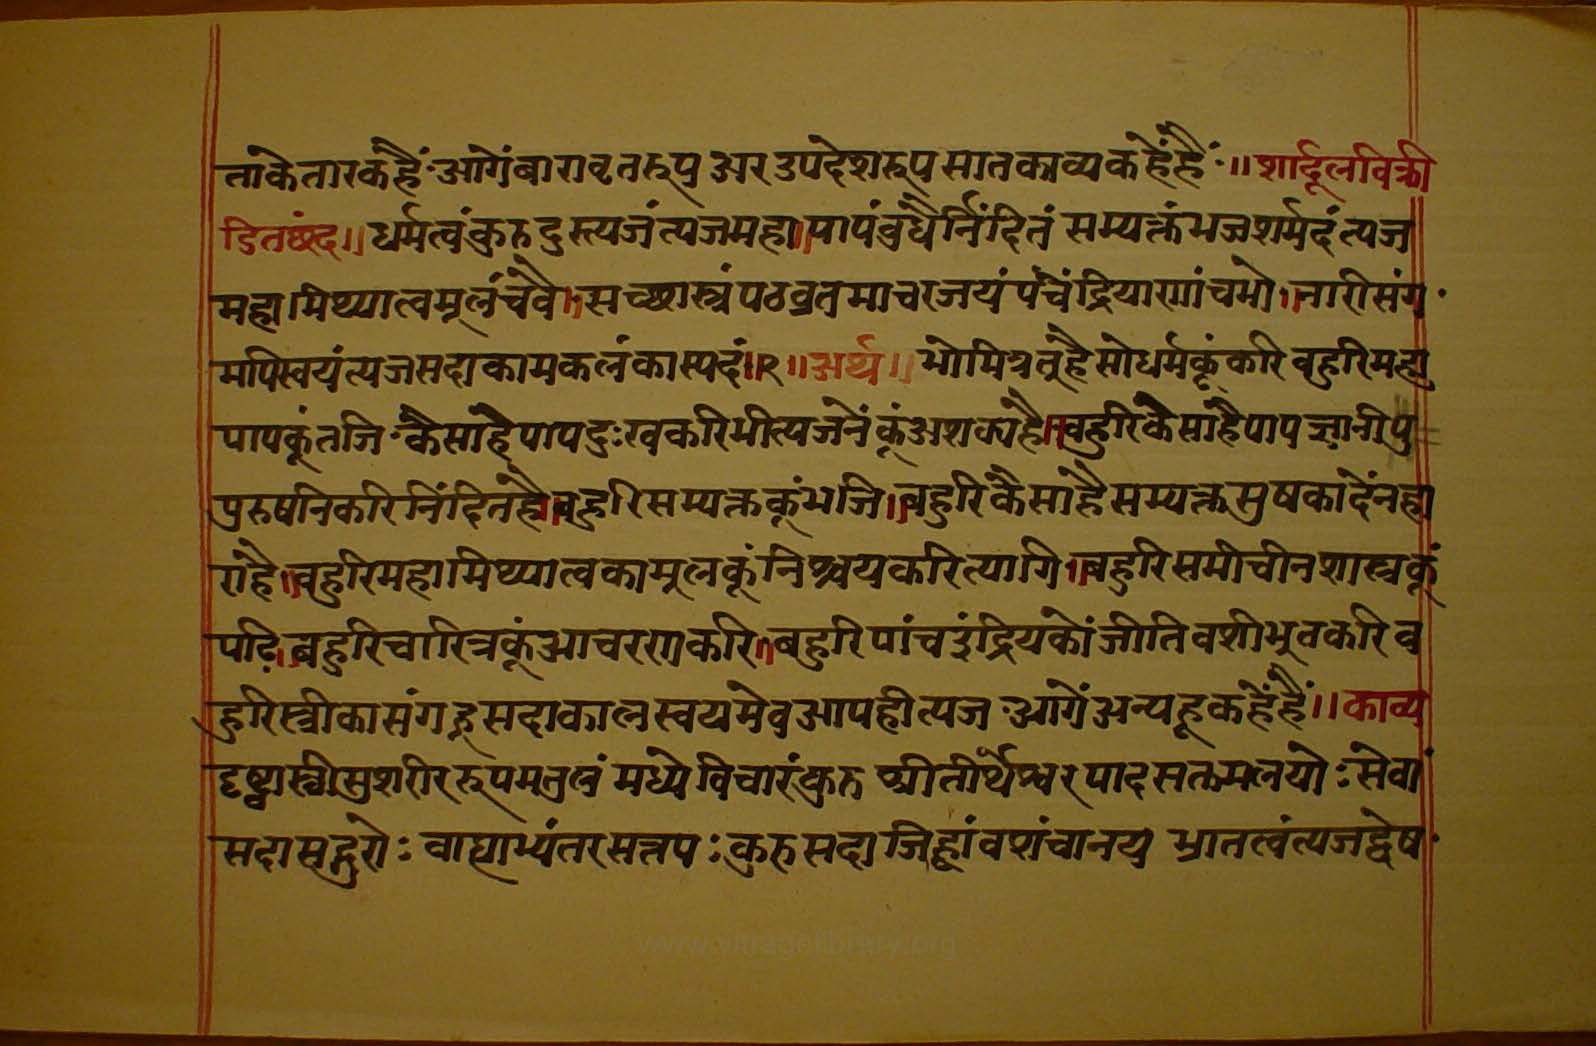 ताके तारक हैं आगें बारा वृतरूप अर उपदेशरूप सात काव्य कहें हैं ॥ शार्दूलविक्री
डितछंद ॥ धर्मत्वं कुरु दुस्त्यजं त्यज महा ॥ पापं बुधैर्निंदितं सम्यक्तं भज शर्मदं त्यज
महामिथ्यात्वमूलं च वै ॥ सच्छास्त्रं पठ व्रतमाचर जयं पंचेंद्रियाणां च भो ॥ नारीसंग
मपि स्वयं त्यज सदा कामकलंकास्पदं ॥ २ ॥ अर्थ ॥ भो मित्र तू है सो धर्मकूं करि बहुरि महा
पापकूं तजि कैसा है पाप दुःखकरि भी त्यजनेंकूं अशक्य है ॥ बहुरि कैसा है पाप ज्ञानी पु
पुरुषनिकरि निंदित है ॥ बहुरि सम्यक्तकूं भजि ॥ बहुरि कैसा है सम्यक्त सुषका देंनहा
रा है ॥ बहुरि महामिथ्यात्वका मूलकूं निश्चयकरि त्यागि ॥ बहुरि समीचीन शास्त्रकूं
पढि ॥ बहुरि चारित्रकूं आचरण करि ॥ बहुरि पांच इंद्रियकों जीति वशीभूत करि ब
हुरि स्त्रीका संगकू सदाकाल स्वयमेव आपही त्यज आगें अन्य हू कहें हैं ॥ काव्य
दृष्ट्वा स्त्रीसुशरीररूपमतुलं मध्ये विचारं कुरु श्रीतीर्थेश्वरपाद सेवां
सदा सद्गुरोः बाह्याभ्यंतरसत्तपः कुरु सदा जिह्वां वशं चानय भ्रातत्वं त्यज द्वेष
www.vitragelibrary.org